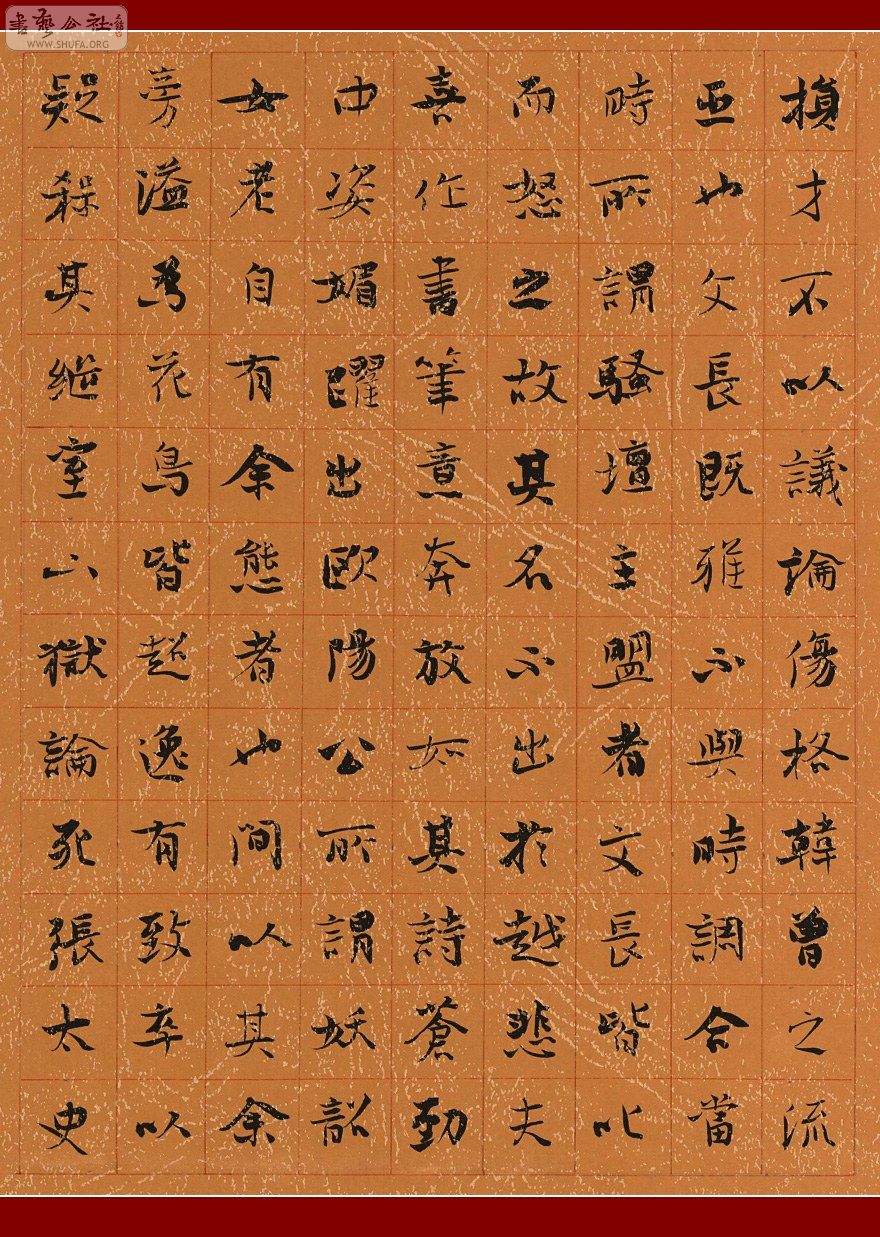 書藝公社
WWW.SHUFA.ORG
損才不以議論傷格韓曾之流
亞也文長既雅不與時調合當
時所謂騷壇主盟者文長皆叱
而怒之故其名不出於越悲夫
喜作書筆意奔放如其詩蒼勁
中姿媚躍出歐陽公所謂妖韶
女老自有余態者也間以其余
旁溢為花鳥皆超逸有致卒以
疑殺其繼室下獄論死張太史